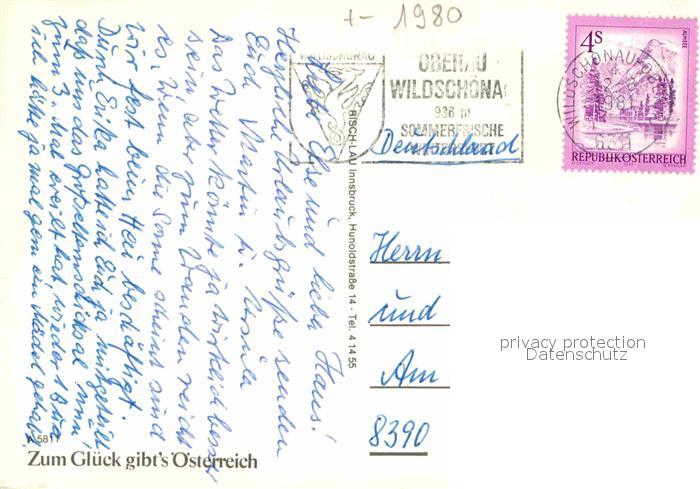 + - 1980
WILDSCHÖNAU
OBERAU
WILDSCHÖNAU
936 m
SOMMERFRISCHE
4S
ALMSEE
REPUBLIK ÖSTERREICH
WILDSCHÖNAU-OB
Deutschland
Herrn
und
Am
8390
privacy protection
Datenschutz
RISCH-LAU Innsbruck, Hunoldstraße 14 - Tel. 4 14 55
Liebe Else und lieber Hans!
Herzliche Urlaubsgrüße senden
Euch Martin u. Ursula
Das Wetter könnte ja wirklich besser
sein aber zum Wandern reicht
es. Wenn die Sonne scheint sind
wir fest beim Heu beschäftigt.
Durch Erika hattet Ihr Euch ja mitgeteilt
daß uns das Großelternschicksal nun
zum 3. Mal ereilt hat, wieder 1 Bub
ich hätte ja mal gern ein Mädel gehabt
A 5811
Zum Glück gibt's Österreich